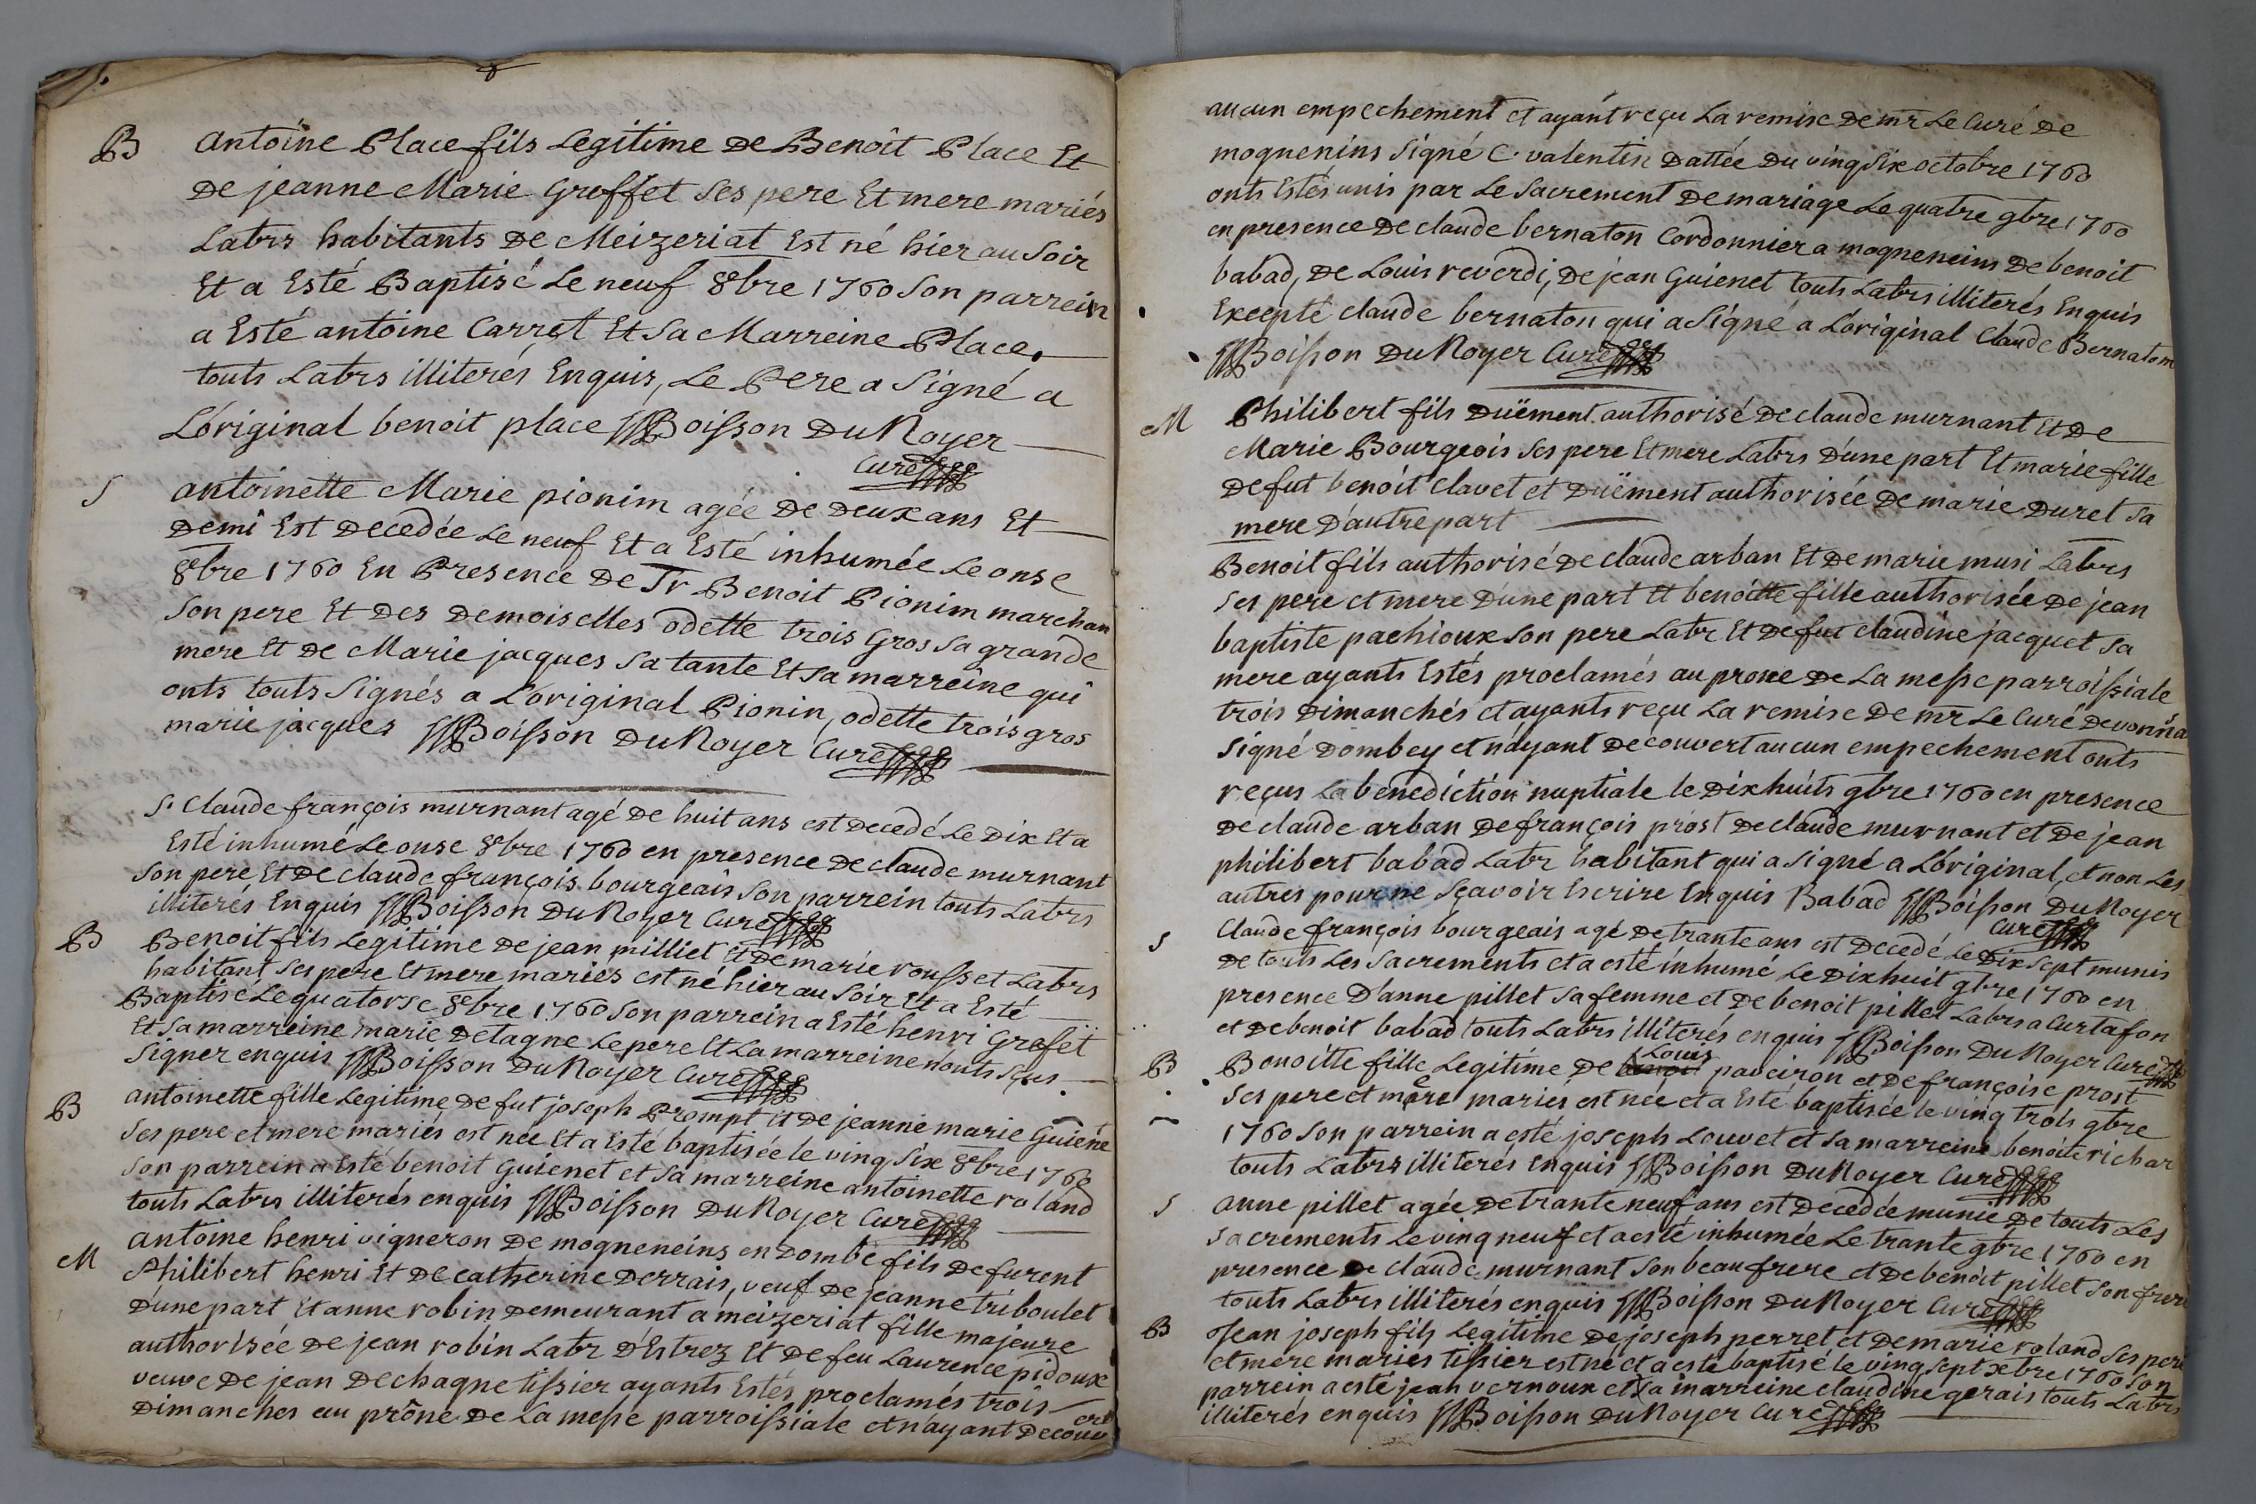 B Antoine Place fils Legitime De Benoît Place Et
De jeanne Marie Groffet Ses pere Et mere mariés
Labrs habitants De Meizeriat Est né hier au Soir
Et a Esté Baptisé Le neuf 8bre 1760 Son parrein
a Esté antoine Carret Et Sa Marreine Place.
touts Labrs illiterés Enquis, Le Pere a Signé a
L'original benoit place Boisson Du Noyer
Curé
S antoinette Marie pionim agée De Deux ans Et
Demi Est Decedée Le neuf Et a Esté inhumée Le onse
8bre 1760 En Presence De Sr Benoit Pionim marchan
Son pere Et Des Demoiselles odette trois Gros Sa grande
mere Et De Marie jacques Sa tante Et Sa marreine qui
onts touts Signés a L'original Pionin, odette trois gros
marie jacques Boisson Du Noyer Curé
S. Claude françois murnant agé De huit ans est Decedé Le Dix Et a
Esté inhumé Le onse 8bre 1760 en presence De claude murnant
Son pere Et De claude françois bourgeais Son parrein touts Labrs
illiterés Enquis Boisson Du Noyer Curé
B Benoit fils Legitime De jean milliet Et De marie rousset Labrs
habitant Ses pere Et mere mariés est né hier au Soir Et a Esté
Baptisé Le quatorse 8bre 1760 Son parrein a Esté henri Grofet
Et Sa marreine marie Detagne Le pere Et La marreine n'onts Sçus
Signer enquis Boisson Du Noyer Curé
B antoinette fille Legitime De fut joseph Prompt Et De jeanne marie Guiene
Ses pere et mere mariés est née Et a Esté baptisée le ving Six 8bre 1760
Son parrein a Esté benoit Guienet et Sa marreine antoinette roland
touts Labrs illiterés enquis Boisson Du Noyer Curé
M antoine henri vigneron De mogneneins en Dombe fils De furent
Philibert henri Et De catherine Derrais, veuf De jeanne triboulet
D'une part Et anne robin Demeurant a meizeriat fille majeure
authorisée De jean robin Labr D'Estrez Et De feu Laurence pidoux
veuve De jean Dechagne tissier ayants Estés proclamés trois
Dimanches au prône De La messe parroissiale et n'ayant Decouvert
aucun empechement et ayant reçu La remise De mr Le Curé De
mognenins Signé C. valentin Dattée Du ving Six octobre 1760
onts Estés unis par Le Sacrement De mariage Le quatre 9bre 1760
en presence De claude bernaton Cordonnier a mogneneins De benoit
babad, De Louis reverdi, De jean Guienet touts Labrs illiterés Enquis
Excepté claude bernaton qui a Signé a L'original Claude Bernatom
Boisson Du Noyer Curé
M Philibert fils Duëment authorisé De claude murnant Et De
Marie Bourgeois Ses pere Et mere Labrs D'une part Et marie fille
De fut benoit clavet et Duëment authorisée De marie Duret Sa
mere D'autre part
Benoit fils authorisé De claude arban Et De marie musi Labrs
Ses pere et mere D'une part Et benoitte fille authorisée De jean
baptiste pachioux Son pere Labr Et De fut claudine jacquet Sa
mere ayants Estés proclamés au prone De La messe parroissiale
trois Dimanchés et ayants reçu La remise De mr Le Curé De vonna
Signé Dombey et n'ayant Decouvert aucun empechement onts
reçus La benediction nuptiale le Dixhuits 9bre 1760 en presence
De claude arban De françois prost De claude murnant et De jean
philibert babad Labr habitant qui a Signé a L'original, et non Les
autres pour ne Sçavoir Escrire Enquis Babad Boisson Du Noyer
Curé
S Claude françois bourgeais agé De trante ans est Decedé Le Dix Sept munis
De touts Les Sacrements et a esté inhumé Le Dixhuit 9bre 1760 en
presence D'anne pillet Sa femme et De benoit pillet Labrs a Curtafon
et De benoit babad touts Labrs illiterés enquis Boisson Du Noyer Curé
B Benoitte fille Legitime De Louis pauciron et De françoise prost
Ses pere et mere mariés est née et a Esté baptisée le ving trois 9bre
1760 Son parrein a esté joseph Louvet et Sa marreine benoite richar
touts Labrs illiterés Enquis Boisson Du Noyer Curé
S anne pillet agée De trante neuf ans est Decedée munie De touts Les
Sacrements Le ving neuf et a esté inhumée Le trante 9bre 1760 en
presence De claude murnant Son beau frere et De benoit pillet Son frere
touts Labrs illiterés enquis Boisson Du Noyer Curé
B Jean joseph fils Legitime De joseph perret et De marie roland Ses pere
et mere mariés tissier est né et a esté baptisé le ving Sept Xbre 1760 Son
parrein a esté jean vernoux et Sa marreine claudine gerais touts Labrs
illiterés enquis Boisson Du Noyer Curé